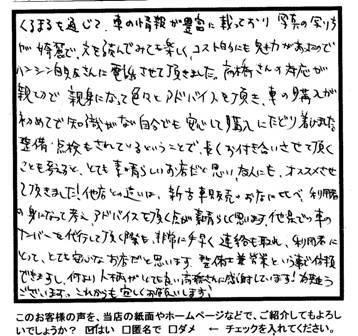 くるまるを通じて、車の情報が豊富に載っており写真の写り方
が綺麗で、文を読んでみても楽しく、コスト的にも魅力があったので
ハンシン自友さんに電話させて頂きました。高橋さんの対応が
親切で親身になって色々とアドバイスを頂き、車の購入が
初めてで知識がない自分でも安心して購入にたどり着けました
整備・点検もされているということで、長くお付き合いさせて頂く
ことも考えると、とても素晴らしいお店だと思い、友人にも、オススメさせ
て頂きました!他店との違いは、新古車販売のお店に比べ、利用者
の身になって考え、アドバイスを頂く点が素晴らしく思います。他店で車の
ナンバーを代行して頂く際も、非常に手早く連絡も取れ、利用者に
とって、とても安心なお店だと思います。整備士兼営業という事で信頼
できますし、何より人柄がとても良い高橋さんに感謝しています!
ございます。これからも宜しくお願いします。
このお客様の声を、当店の紙面やホームページなどで、ご紹介してもよろし
いでしょうか? ☑はい ☐匿名で ☐ダメ ← チェックを入れてください。